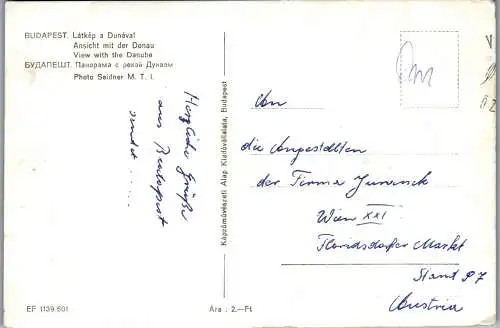 BUDAPEST. Látkép a Dunával
Ansicht mit der Donau
View with the Danube
БУДАПЕШТ. Панорама с рекой Дунаом
Photo Seidner M. T. I.
Herzliche Grüße
aus Budapest
sendet .....
Képzőművészeti Alap Kiadóvállalata, Budapest
An
die Angestellten
der Firma
Wien XXI
Floridsdorfer Markt
Stand 97
Austria
EF 1139 601
Ára : 2.—Ft